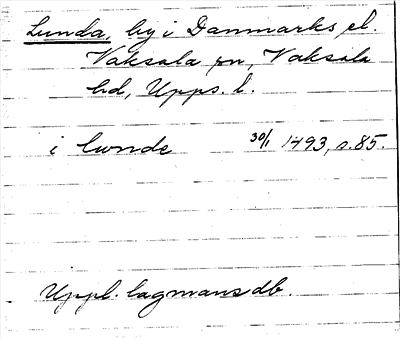 Lunda, by i Danmarks el.
Vaksala sn, Vaksala
hd, Upps. l.
i lwnde 30/1 1493, s. 85.
Uppl. lagmansdb.